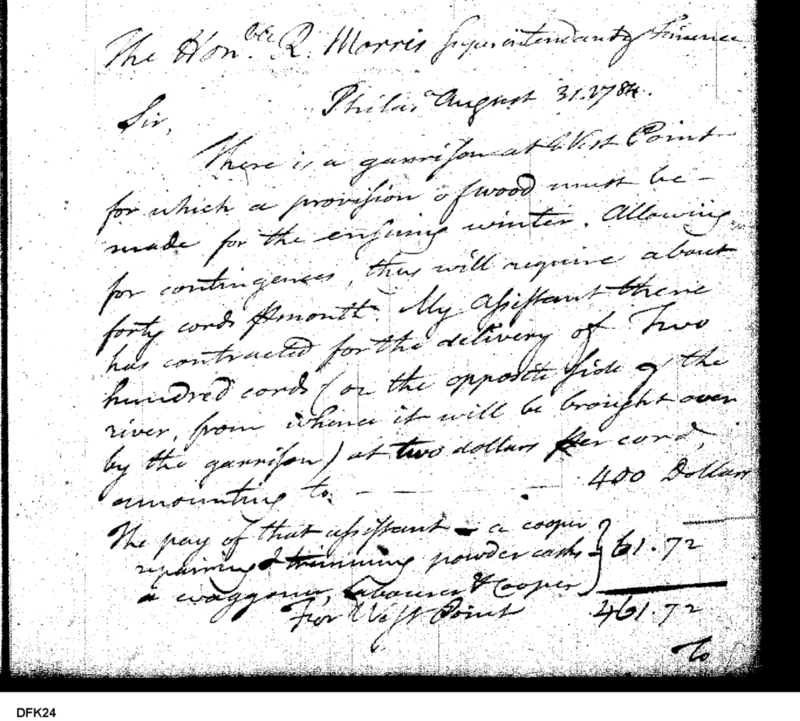 The Hon.ble R. Morris Superintendant of Finance
Philaa. August 31. 1784.
Sir,
There is a garrison at West Point
for which a provision of wood must be
made for the ensuing winter. Allowing
for contingences, they will require about
forty cords month. My assistant there
has contracted for the delivery of Two
hundred cords (on the opposite side of the
river, from whence it will be brought over
by the garrison) at two dollars per cord,
amounting to. — — — 400 Dollars
The pay of that assistant — a cooper
repairing & trimming powder casks 61.72
a waggoner, Labourer & Cooper
For West Point 461.72
To
DFK24